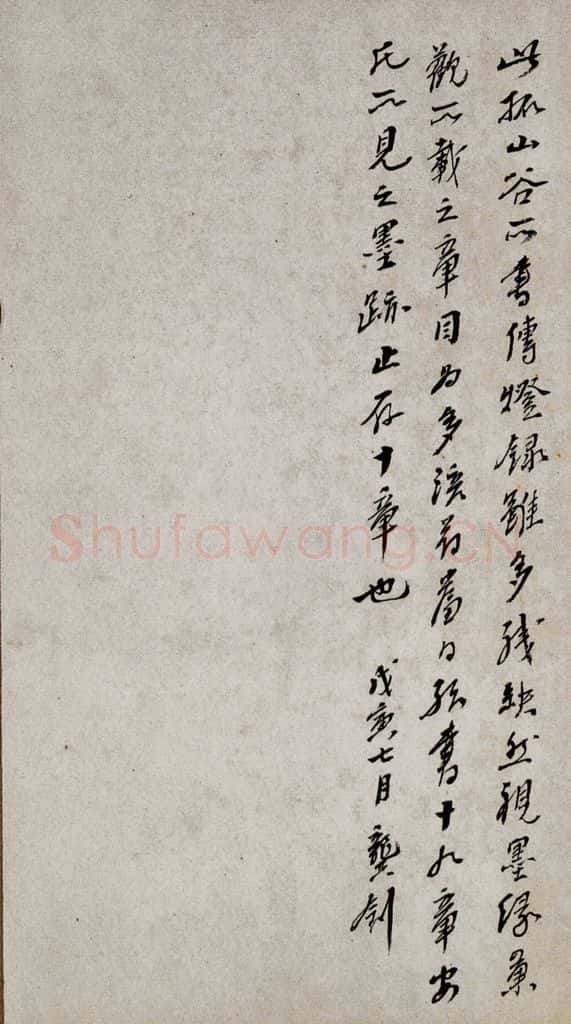 此拓山谷所書傳燈錄雖多殘缺然視墨緣彙
觀所載之章目為多書十九章安
氏所見之墨跡止存十章也 戊寅七月龔釗
Shufawang.CN